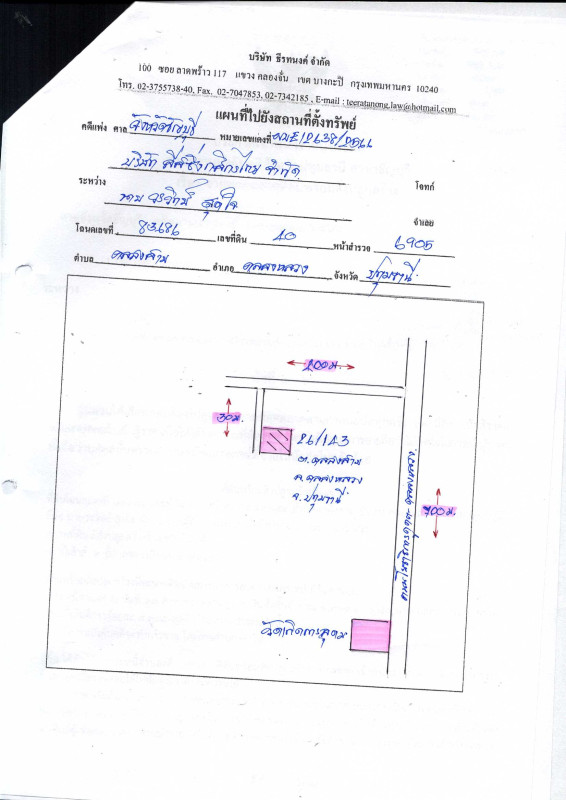 บริษัท ธีรทนงค์ จำกัด
100 ซอย ลาดพร้าว 117 แขวง คลองจั่น เขต บางกะปิ กรุงเทพมหานคร 10240
โทร. 02-3755738-40, Fax. 02-7047853, 02-7342185 , E-mail : teeratanong.law@hotmail.com
แผนที่ไปยังสถานที่ตั้งทรัพย์
คดีแพ่ง ศาล จังหวัดธัญบุรี หมายเลขแดงที่
บริษัท ลีสซิ่งกสิกรไทย จำกัด
ระหว่าง โจทก์
สุดใจ จำเลย
โฉนดเลขที่ 83686 เลขที่ดิน 40 หน้าสำรวจ 6905
ตำบล คลองสาม อำเภอ คลองหลวง จังหวัด ปทุมธานี
200 ม.
30 ม.
26/143
ต.คลองสาม
อ.คลองหลวง
จ.ปทุมธานี
700 ม.